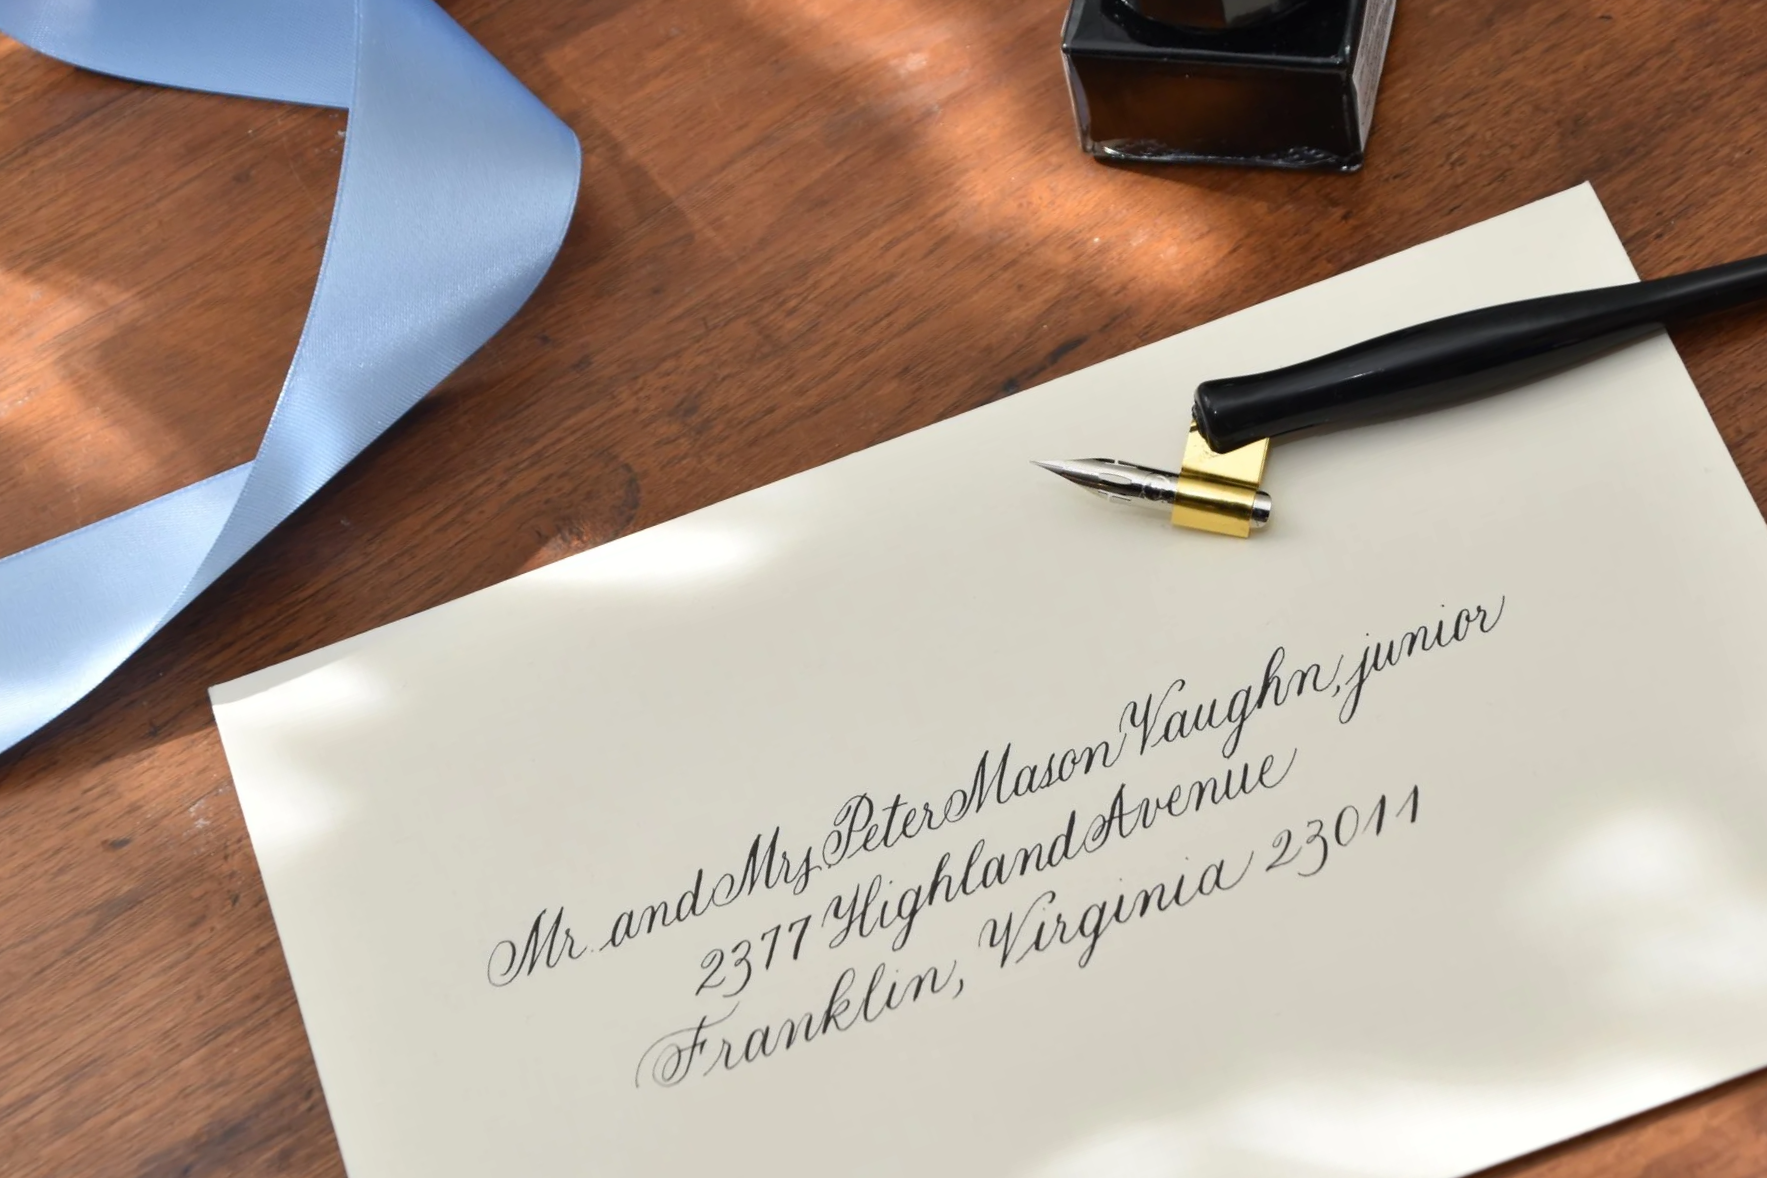 Mr. and Mrs. Peter Mason Vaughn, junior
2377 Highland Avenue
Franklin, Virginia 23011